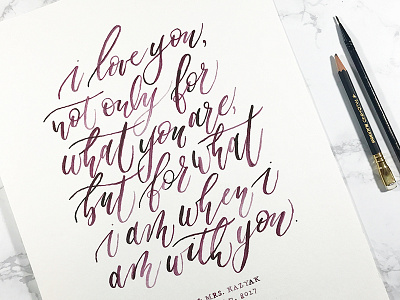 i love you,
not only for
what you are,
but for what
i am when i
am with you.
MRS. KAZYAK
2017